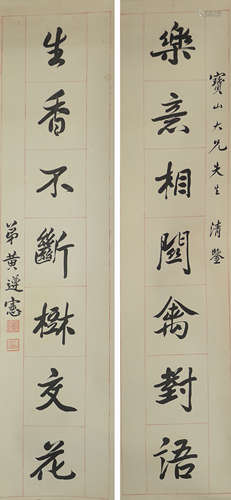 寶山大兄先生清鑒
樂意相關禽對語
生香不斷樹交花
弟黃遵憲